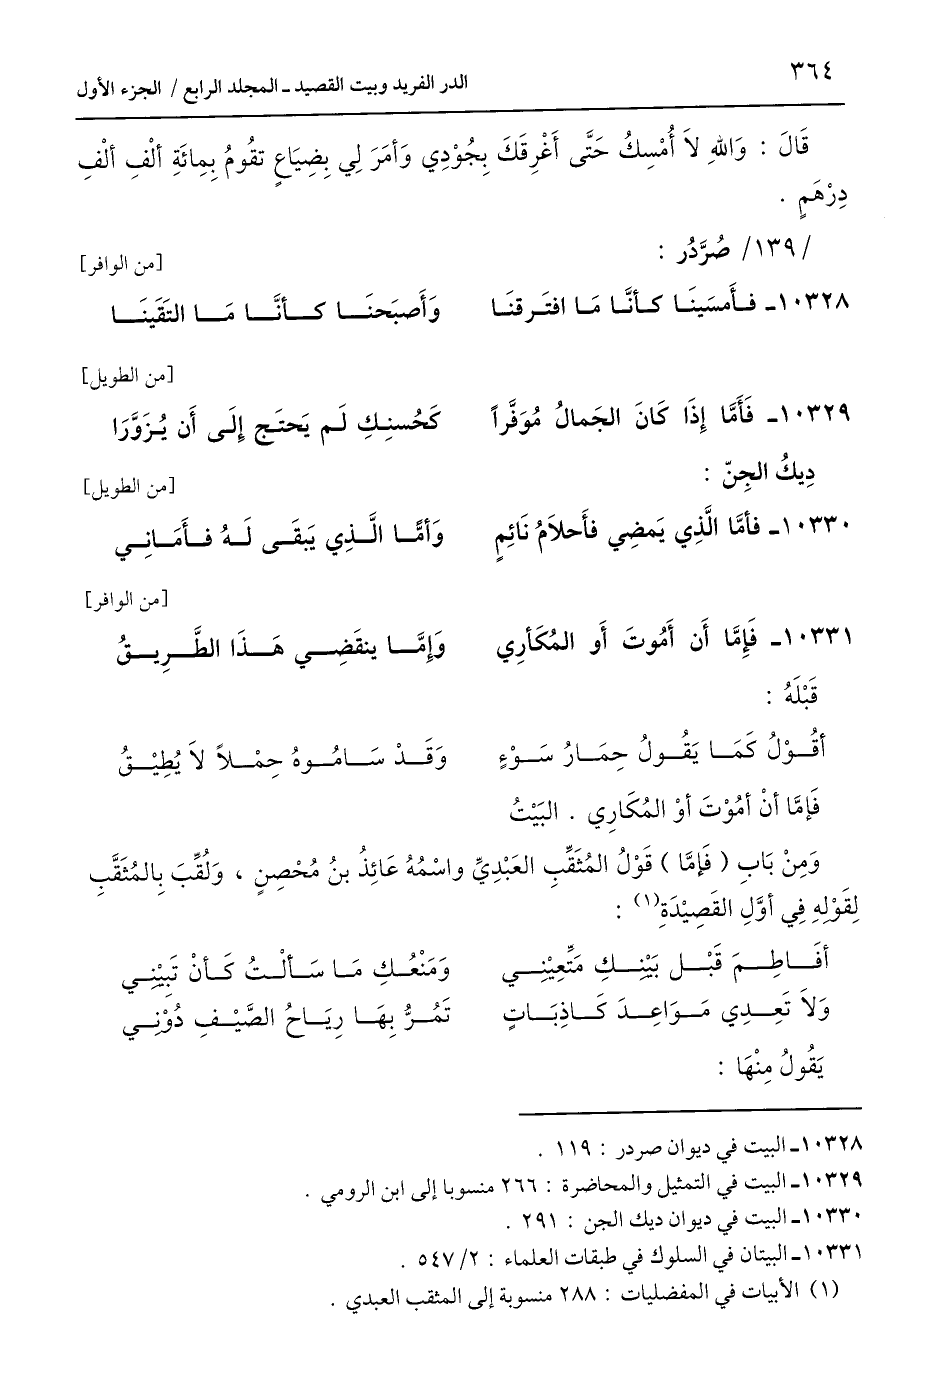 ٣٦٤
الدر الفريد وبيت القصيد ـ المجلد الرابع / الجزء الأول
قَالَ : وَاللهِ لاَ أُمْسِكُ حَتَّى أَغْرِقَكَ بِجُوْدِي وَأمَرَ لِي بِضِيَاعٍ تقُومُ بِمِائَةِ ألْفِ ألْفِ
دِرْهَمٍ .
/١٣٩/ صُرَّدُر :
[من الوافر]
١٠٣٢٨ـ فـأَمسَينَا كـأنَّا مَا افتَـرقنَا وَأَصبَحنَـا كـأنَّـا مَـا التَقَينَـا
[من الطويل]
١٠٣٢٩ـ فَأَمَّا إِذَا كَانَ الجَمالُ مُوَفَّراً كَحُسنِـكِ لَـم يَحتَـج إِلَـى أَن يُـزَوَّرَا
دِيكُ الجِنّ :
[من الطويل]
١٠٣٣٠ـ فأمَّا الَّذِي يَمضِي فأَحلاَمُ نَائِمٍ وَأمَّـا الَّـذِي يَبقَـى لَـهُ فـأَمَـانِـي
[من الوافر]
١٠٣٣١ـ فَإِمَّا أَن أَمُوتَ أَو المُكَأرِي وَإِمَّـا ينقَضِـي هَـذَا الطَّـرِيـقُ
قَبْلَهُ :
أقُوْلُ كَمَـا يَقُـولُ حِمَـارُ سَـوْءٍ وَقَـدْ سَـامُـوهُ حِمْـلاً لاَ يُطِيْـقُ
فَإِمَّا أنْ أمُوْتَ أوْ المُكَارِي . البَيْتُ
وَمِنْ بَابِ ( فَإِمَّا ) قَوْلُ المُثَقَّبِ العَبْدِيِّ واسْمُهُ عَائِذُ بنُ مُحْصِنٍ ، وَلُقِّبَ بِالمُثَقَّبِ
لِقَوْلِهِ فِي أوَّلِ القَصِيْدَةِ(١) :
أفَـاطِـمَ قَبْـلَ بَيْنِـكِ مَتِّعِيْنِـي وَمَنْعُـكِ مَـا سَـألْـتُ كَـأنْ تَبِيْنِـي
وَلاَ تَعِـدِي مَـوَاعِـدَ كَـاذِبَـاتٍ تَمُـرُّ بِهَـا رِيَـاحُ الصَّيْـفِ دُوْنِـي
يَقُولُ مِنْهَا :
١٠٣٢٨ـ البيت في ديوان صردر : ١١٩ .
١٠٣٢٩ـ البيت في التمثيل والمحاضرة : ٢٦٦ منسوبا إلى ابن الرومي .
١٠٣٣٠ـ البيت في ديوان ديك الجن : ٢٩١ .
١٠٣٣١ـ البيتان في السلوك في طبقات العلماء : ٢/ ٥٤٧ .
(١) الأبيات في المفضليات : ٢٨٨ منسوبة إلى المثقب العبدي .